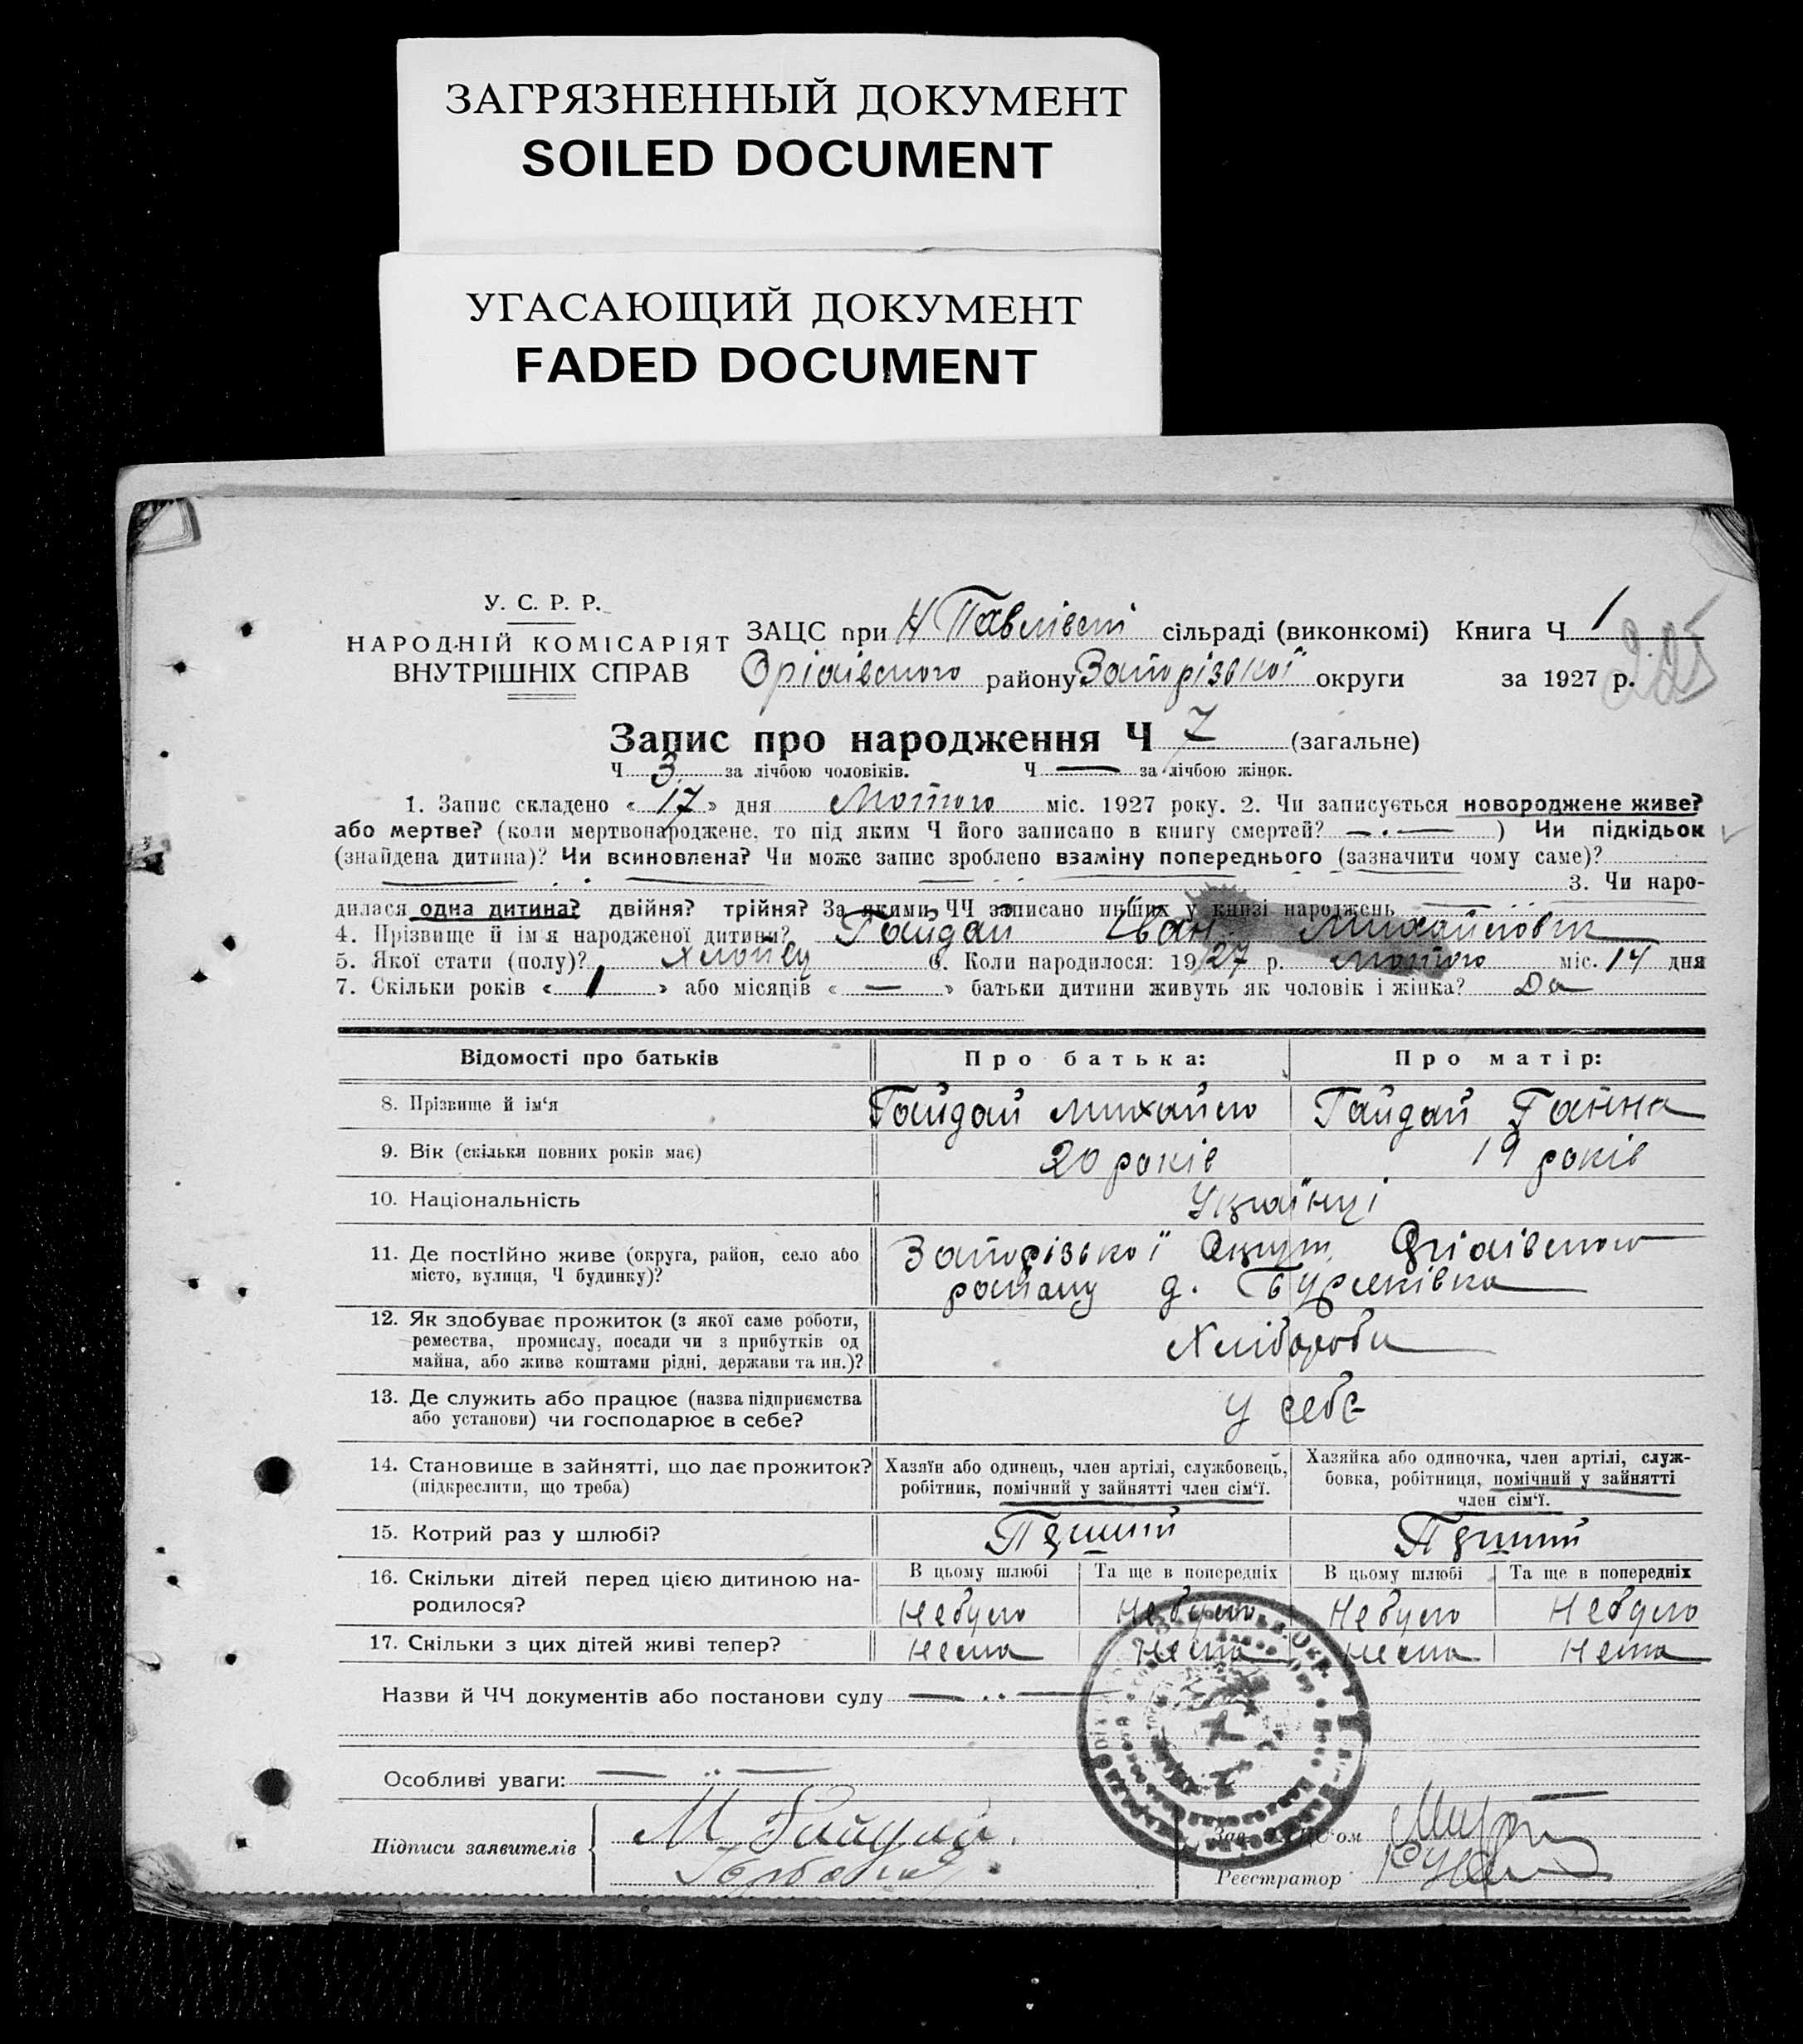 ЗАГРЯЗНЕННЫЙ ДОКУМЕНТ
SOILED DOCUMENT
УГАСАЮЩИЙ ДОКУМЕНТ
FADED DOCUMENT
У. С. Р. Р.
НАРОДНІЙ КОМІСАРІЯТ
ВНУТРІШНІХ СПРАВ
ЗАЦС при Н Павлівст сільраді (виконкомі) Книга Ч 1
Оріхівського району Запорізської округи за 1927 р.
Запис про народження Ч 7 (загальне)
Ч 3 за лічбою чоловіків. Ч — за лічбою жінок.
1. Запис складено « 17 » дня Лютого міс. 1927 року. 2. Чи записується новороджене живе?
або мертве? (коли мертвонароджене, то під яким Ч його записано в книгу смертей? —·— ) Чи підкідьок
(знайдена дитина)? Чи всиновлена? Чи може запис зроблено взаміну попереднього (зазначити чому саме)?
3. Чи наро-
дилася одна дитина? двійня? трійня? За якими ЧЧ записано инших у книзі народжень
4. Прізвище й ім'я народженої дитини? Гайдай Іван Михайлович
5. Якої стати (полу)? Хлопец 6. Коли народилося: 1927 р. Лютого міс. 14 дня
7. Скільки років « 1 » або місяців « — » батьки дитини живуть як чоловік і жінка? Да
Відомості про батьків Про батька: Про матір:
8. Прізвище й ім'я Гайдай Михайло Гайдай Ганна
9. Вік (скільки повних років має) 20 років 19 років
10. Національність Українці
11. Де постійно живе (округа, район, село або Запорізської Округи Оріхівского
місто, вулиця, Ч будинку)? району д. Бурлківка
12. Як здобуває прожиток (з якої саме роботи,
ремества, промислу, посади чи з прибутків од
майна, або живе коштами рідні, держави та ин.)? Хліборобы
13. Де служить або працює (назва підприємства
або установи) чи господарює в себе? у себе
14. Становище в зайнятті, що дає прожиток? Хазяїн або одинець, член артілі, службовець, Хазяйка або одиночка, член артілі, служ-
(підкреслити, що треба) робітник, помічний у зайнятті член сім'ї. бовка, робітниця, помічний у зайнятті
член сім'ї.
15. Котрий раз у шлюбі? Перший Перший
16. Скільки дітей перед цією дитиною на- В цьому шлюбі Та ще в попередніх В цьому шлюбі Та ще в попередніх
родилося? Небуло Небуло Небуло Небуло
17. Скільки з цих дітей живі тепер? Нема Нема Нема Нема
Назви й ЧЧ документів або постанови суду
Особливі уваги:
Підписи заявителів М Гайдай
Зав. ЗАЦС'ом
Реєстратор